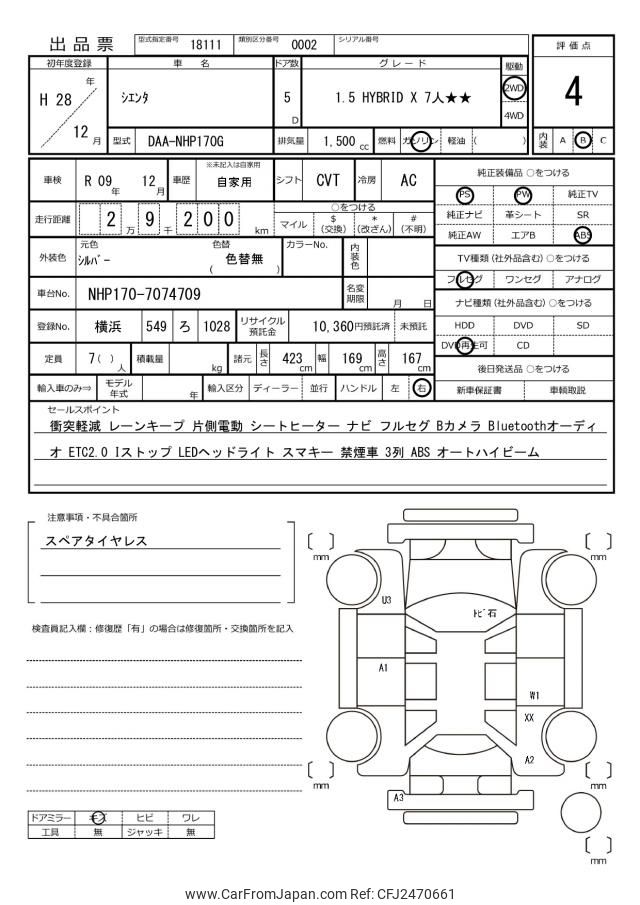 出品票
型式指定番号 18111 類別区分番号 0002 シリアル番号
評価点
4
初年度登録 車名 ドア数 グレード 駆動
H 28 年 12 月
シエンタ
5 D
1.5 HYBRID X 7人★★
2WD
4WD
型式 DAA-NHP170G 排気量 1,500 cc 燃料 ガソリン 軽油 ( )
内装 A B C
車検 R 09 年 12 月 車歴 ※未記入は自家用 自家用 シフト CVT 冷房 AC
走行距離 2 万 9 千 2 0 0 km
○をつける
マイル $(交換) *(改ざん) #(不明)
外装色 元色 シルバー 色替 ( 色替無 ) カラーNo. 内装色
車台No. NHP170-7074709 名変期限 月 日
登録No. 横浜 549 ろ 1028 リサイクル預託金 10,360円預託済 未預託
定員 7 ( ) 人 積載量 kg 諸元 長さ 423 cm 幅 169 cm 高さ 167 cm
輸入車のみ⇒ モデル年式 年 輸入区分 ディーラー 並行 ハンドル 左 右
純正装備品 ○をつける
PS PW 純正TV
純正ナビ 革シート SR
純正AW エアB ABS
TV種類 (社外品含む) ○をつける
フルセグ ワンセグ アナログ
ナビ種類 (社外品含む) ○をつける
HDD DVD SD
DVD再生可 CD
後日発送品 ○をつける
新車保証書 車輌取説
セールスポイント
衝突軽減 レーンキープ 片側電動 シートヒーター ナビ フルセグ Bカメラ Bluetoothオーディ
オ ETC2.0 Iストップ LEDヘッドライト スマキー 禁煙車 3列 ABS オートハイビーム
注意事項・不具合箇所
スペアタイヤレス
検査員記入欄：修復歴「有」の場合は修復箇所・交換箇所を記入
mm
mm
U3
トビ石
A1
W1
XX
A2
A3
mm
mm
mm
ドアミラー キズ ヒビ ワレ
工具 無 ジャッキ 無
www.CarFromJapan.com Ref: CFJ2470661